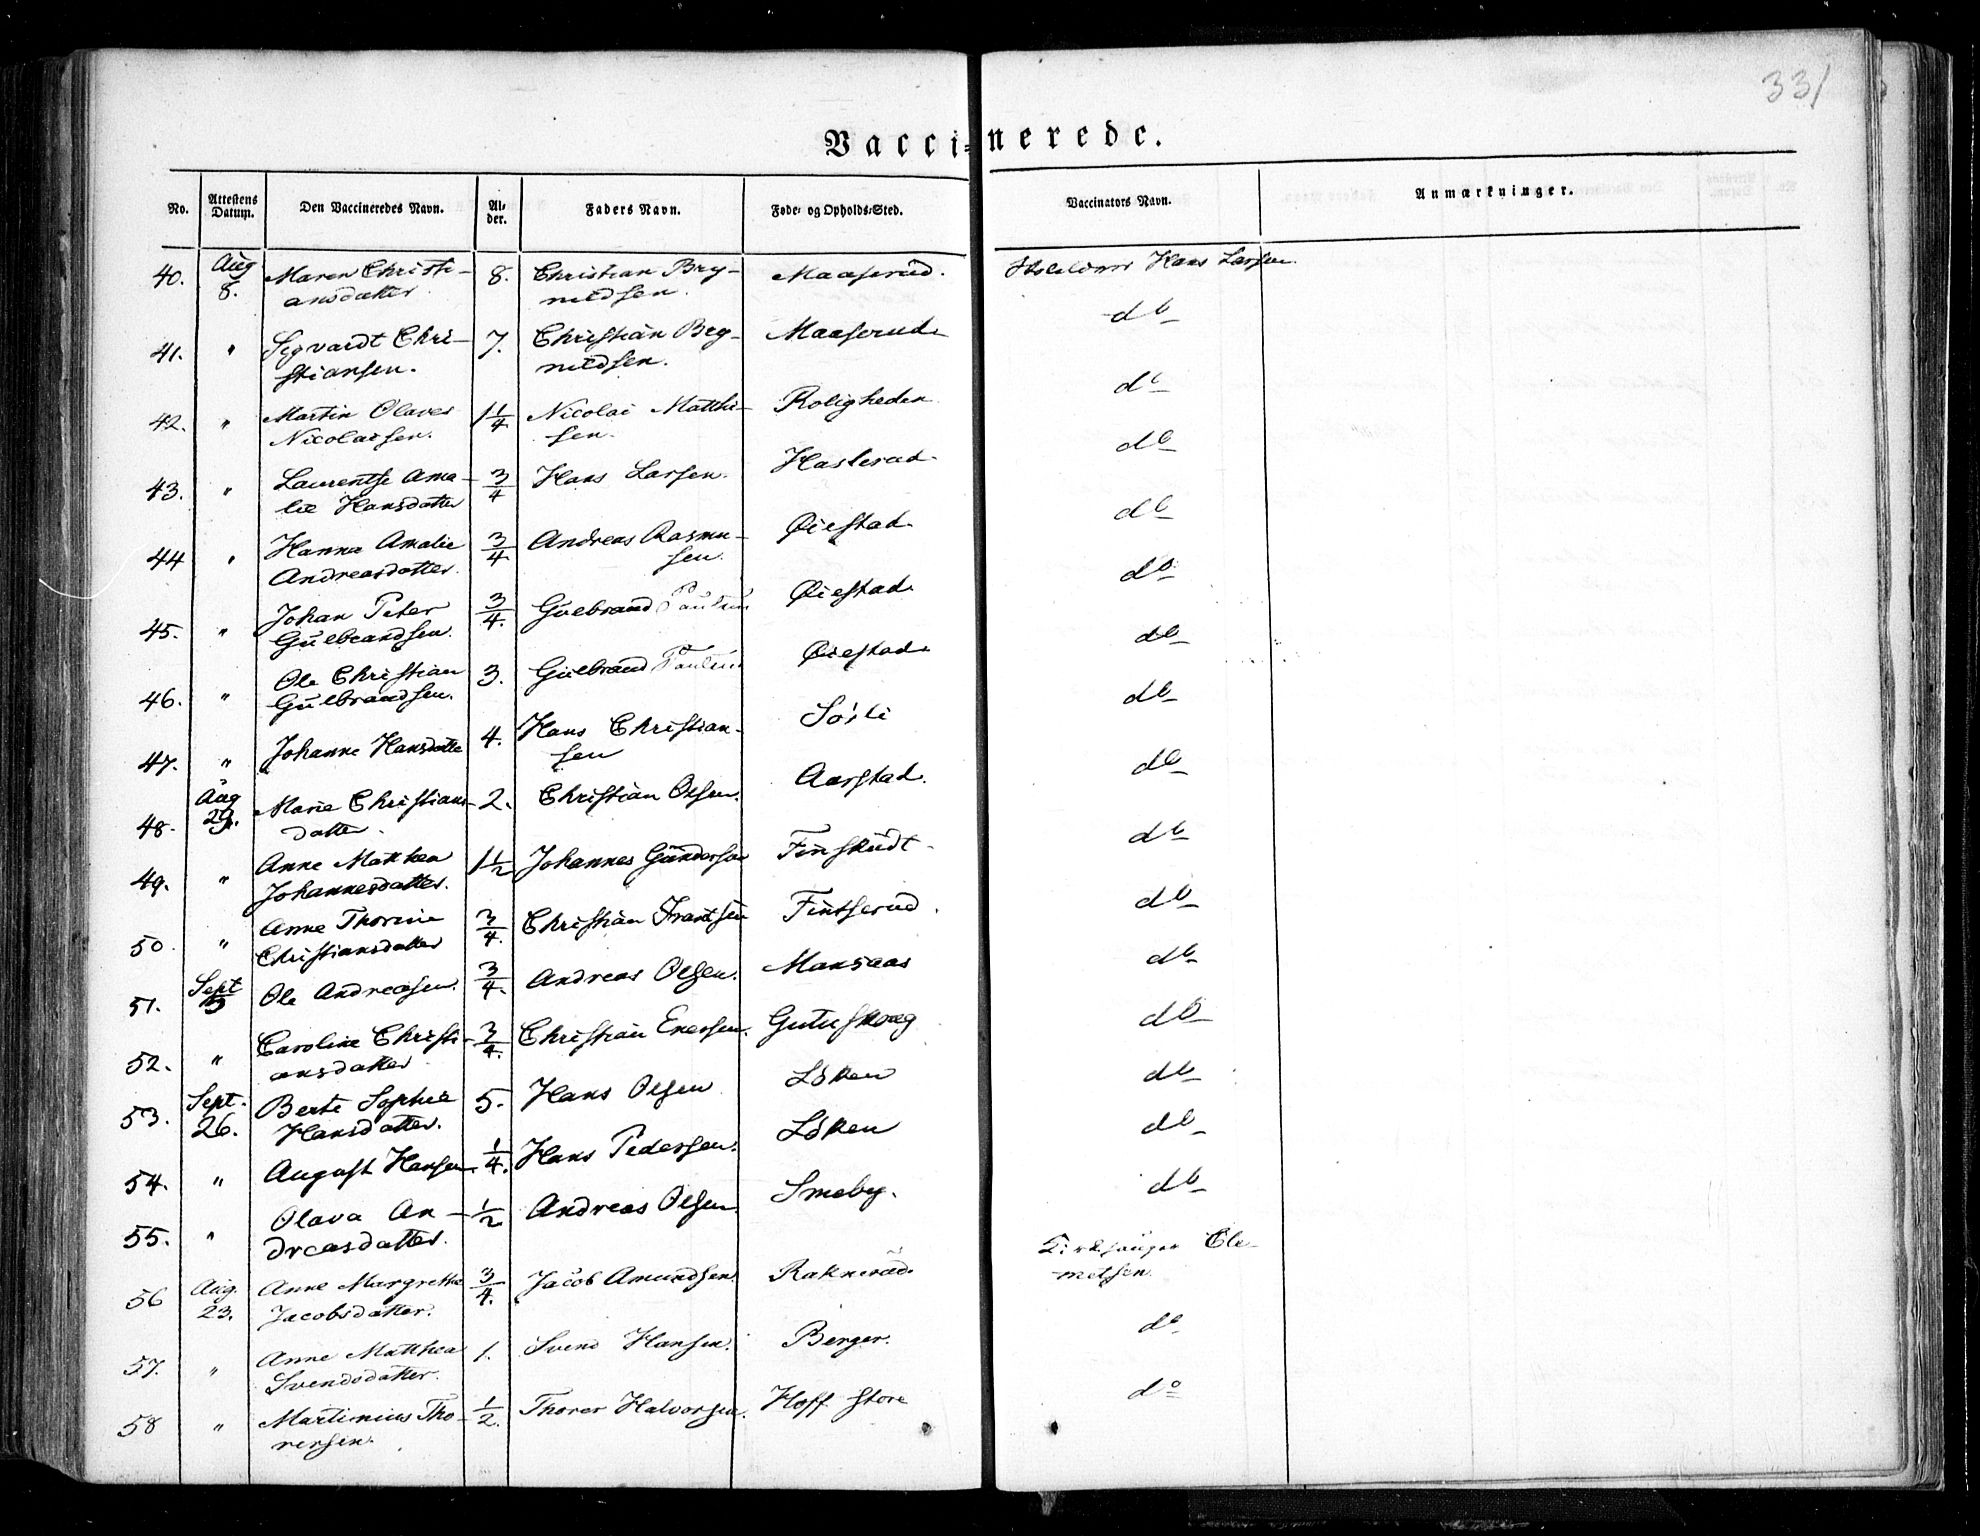 331
Vaccinerede.
No. Attestens Datum. Den Vaccineredes Navn. Alder. Faders Navn. Føde- og Opholds-Sted. Vaccinators Navn. Anmærkninger.
40. Aug 8. Maren Christi- 8. Christian Bry- Maaserud. Hans Larsen.
ansdatter nildsen.
41. " Sigvardt Chri- 7. Christian Bry- Maaserud. do
stiansen. nildsen.
42. " Martin Olaves 1 1/4 Nicolai Matthi- Roligheden do
Nicolaisen. sen.
43. " Laurentse Ama- 3/4 Hans Larsen. Haslerud. do
lie Hansdatter
44 " Hanna Amalie 3/4 Andreas Rasmu- Øiestad. do
Andreasdatter. sen.
45. " Johan Peter 3/4. Gulbrand Paulsen Øiestad. do
Gulbrandsen.
46. " Ole Christian 3. Gulbrand Paulsen Øiestad. do
Gulbrandsen.
47. " Johanne Hansdatter 4. Hans Christian- Søsli do
sen
48. Aug 29. Marie Christians- 2. Christian Olsen. Aarstad. do
datter.
49. " Anne Matthea 1 1/2 Johannes Gundersen Finskudt. do
Johannesdatter.
50. " Anne Thorine 3/4. Christian Frantsen Fintserud. do
Christiansdatter
51. Sept Ole Andreasen. 3/4. Andreas Olsen. Mansaas do
52. " Caroline Christi- 3/4. Christian Enersen. Gutuskoug do
ansdatter
53. Sept. 26. Berte Sophie 5. Hans Olsen Löken do
Hansdatter.
54. " August Hansen 1/4. Hans Pedersen. Löken do
55. " Olava An- 1/2 Andreas Olsen Smeby. do
dreasdatter.
56 Aug. 23. Anne Margrethe 3/4. Jacob Amundsen. Raknerud. Kirkesanger Cle-
Jacobsdatter. metsen.
57. " Anne Matthea 1. Svend Hansen. Berger. do
Svendsdatter.
58 " Martinius Tho- 1/2. Thorer Halvorsen. Hoff store do
rersen.